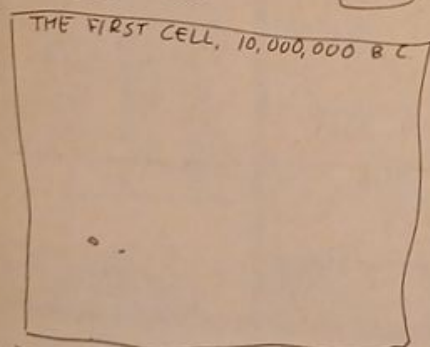 THE FIRST CELL, 10,000,000 B C